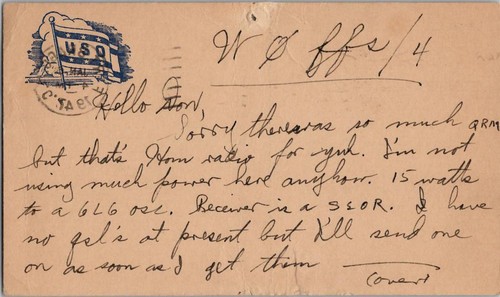 USO
W Ø ffs/4
Hello Don,
Sorry there was so much QRM
but that's Ham radio for yuh. I'm not
using much power here anyhow. 15 watts
to a 6L6 osc. Receiver is a S20R. I have
no qsl's at present but I'll send one
on as soon as I get them
(over)